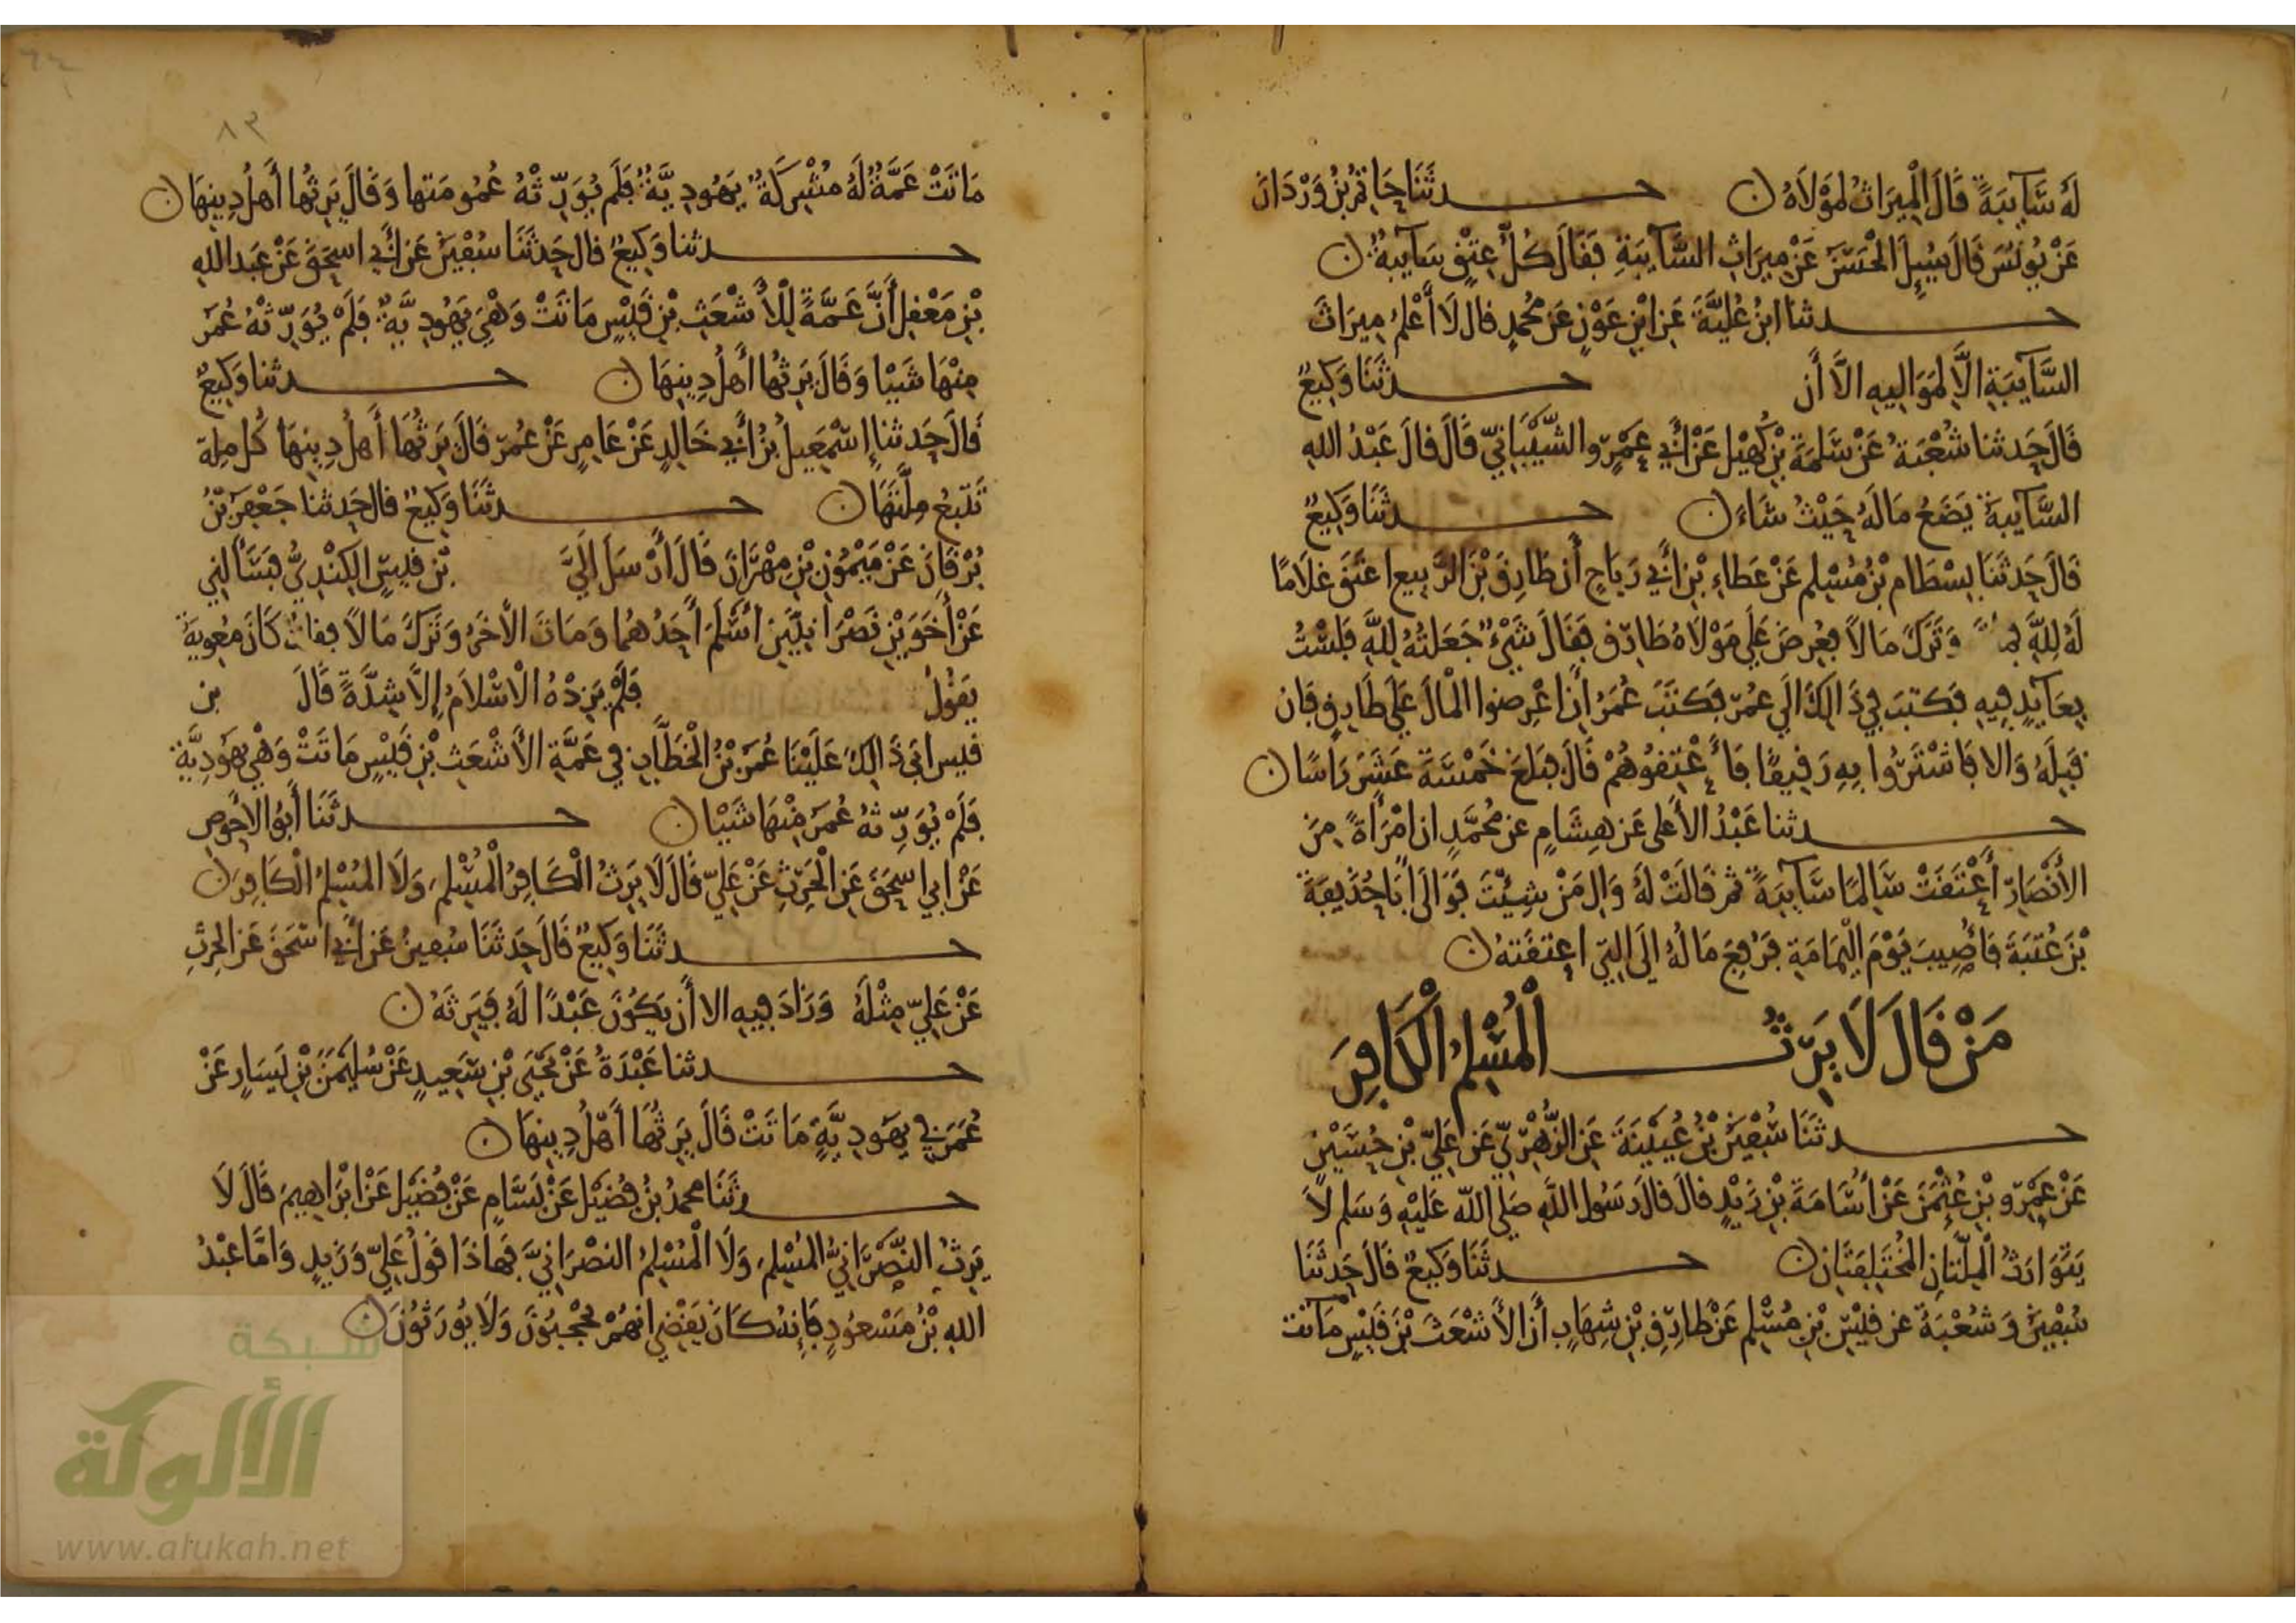 لَهُ سَّآيِبَةً قَالَ الْمِيرَاثُ لِمَوْلَاهُ ن حـــدثَنَا حَاتِمُ بْنُ وَرْدَانَ
عَنْ يُونُسَ قَالَ سُيِلَ الْحَسَنُ عَنْ مِيرَاثِ السَّآيِبَةِ فَقَالَ كُلُّ عِتْقٍ سَآيِبَةٌ ن
حـــدثنا ابْنُ عُلَيَّةَ عَنِ ابْنِ عَوْنٍ عَنْ مُحَمدٍ قال لَا أَعْلَمُ مِيرَاثَ
السَّآيِبَةِ الَّا لِمَوَالِيهِ الَّا أَن حـــدثَنَا وَكِيعٌ
قَالَ حَدثنا شُعْبَةُ عَنْ سَلَمَةَ بْنِ كُهَيْلٍ عَنْ أَبِي عَمْرٍو الشَّيْبَانِيّ قَالَ قالَ عَبْدُ اللهِ
السَّآيِبَةُ يَضَعُ مَالَهُ حَيْثُ شَاءَ ن حـــدثَنَا وَكِيعٌ
قَالَ حَدثَنَا بِسْطَام بْنُ مُسْلِمٍ عَنْ عَطَاءِ بْنِ أَبِي رَبَاحٍ أَن طَارِقَ بْنَ الرَّبِيع اعْتَقَ غلَامًا
لَهُ لِلَّهِ وَتَرَكَ مَالاً فعُرِضَ عَلَى مَوْلَاهُ طَارِق فَقَالَ شَيْءٌ جَعَلتُهُ لِلَّهِ فَلَسْتُ
بِعَآيِدٍ فِيهِ فَكتبَ فِي ذَالِكَ الَي عُمَرَ فَكَتَبَ عُمَرُ أَنِ اعْرِضوا الْمالَ عَلَى طَارِقٍ فَان
قَبِلَهُ وَالا فَاشْتَرُوا بِهِ رَقِيقًا فَأَعْتِقُوهُمْ قَالَ فبَلغَ خَمْسَةَ عَشَرَ رَاسًا ن
حـــدثنا عَبْدُ الأَعلى عَن هِشَامٍ عن مُحَمَّدٍ ان امْرَأةً مِنَ
الأَنْصَارِ أَعْتَقَتْ سَالِمًا سَّآيِبَةً ثم قَالَتْ لَهُ وَالِ مَنْ شِيْتَ فَوَالَى أَبَا حُذَيفَةَ
بْنَ عُتبَةَ فَأُصِيبَ يَوْمَ الْيمَامَةِ فرُفِعَ مَالُهُ الَى التِي اعتَقَتهُ ن
مَنْ قَالَ لَا يَرِثُ الْمُسْلِمُ الْكَافِرَ
حـــدثَنَا سُفْيَنُ بْنُ عُيَيْنَةَ عَنِ الزُّهْرِيّ عَن عَلِيّ بْنِ حُسَيْنٍ
عَنْ عَمْرِو بْنِ عُثْمَنَ عَنْ أُسَامَةَ بْنِ زَيْدٍ قالَ قالَ رَسُولُ اللَّهِ صَلى اللّه عَلَيْهِ وَسَلم لَا
يَتَوَارَثُ الْمِلَّتَانِ الْمُخْتَلِفَتَانِ ن حـــدثَنَا وَكِيعٌ قَالَ حَدثَنَا
سُفْيَنُ وَشُعْبَةُ عن قَيْسِ بْنِ مُسْلِمٍ عَنْ طَارِقِ بْنِ شِهَابٍ أَنَّ الأَشْعَثَ بْنَ قَيْسٍ مَاتت
٨٣
مَاتَتْ عَمَّةٌ لَهُ مُشْرِكَةٌ يَهُودِيَّةٌ فَلَم يُوَرِّثْهُ عُمُو مَتها وَقَالَ يَرِثُها أَهلُ دِينِهَا ن
حـــدثنا وَكِيعٌ قال حَدثَنَا سُفْيَنُ عَنْ أَبِي اسحَقَ عَنْ عَبد اللهِ
بْنِ مَعْقِلٍ أَنَّ عَمَّةً لِلْأَشْعَثِ بْنِ قَيْسٍ مَاتَتْ وَهْيَ يَهُودِيَّةٌ فَلَمْ يُوَرِّثْهُ عُمَرُ
مِنْهَا شَيْيا وَقَالَ يَرِثُها أَهلُ دِينِهَا ن حـــدثنا وَكِيعٌ
قَالَ حَدثنا إِسْمَعِيلُ بْنُ أَبِي خَالِدٍ عَنْ عَامِرٍ عَنْ عُمَرَ قَالَ يَرِثُها أَهلُ دِينِهَا كُل مِلة
تَتْبَعُ مِلَّتَهَا ن حـــدثَنَا وَكِيعٌ قال حَدثنا جَعْفَرُ بْنُ
بُرْقَانَ عَنْ مَيْمُونِ بْنِ مِهْرَانَ قَالَ أَرْسَلَ الَيَّ بْن قَيسٍ الكِنْدِيُّ فَسَأَلنِي
عَنْ أَخَوَيْنِ نَصْرَانِيَّيْنِ أَسْلَمَ أَحَدُهُما وَمَاتَ الأَخَرُ وَتَرَكَ مَالاً فقالَ كَانَ مُعوِيَةُ
يَقُولُ فَلَمْ يَزِدْهُ الْاسْلَامُ إلاَّ شِدَّةً قَالَ بن
قَيس ابَى ذَالِكَ عَلَيْنَا عُمَرُ بْنُ الْخَطَّابِ فِي عَمَّةِ الأَشْعَثِ بْنِ قَيْسٍ مَاتَتْ وَهْيَ يهَوُدِيَّةٌ
فَلَمْ يُوَرِّثهُ عُمَرُ مِنْهَا شَيْيًا ن حـــدثَنَا أَبُو الاحْوَصِ
عَنْ ابي اسحَقَ عَنِ الْحَرِثِ عَنْ عَلِيّ قَالَ لَا يَرِثُ الْكَافِرُ الْمُسْلِمَ وَلَا الْمُسْلِمُ الْكَافِرَ ن
حـــدثَنَا وَكِيعٌ قَالَ حَدثَنَا سُفينُ عَنْ أَبِي اسْحَقَ عَنِ الحرِثِ
عَنْ عَلِيّ مِثْلَهُ وَزَادَ فِيهِ الا أَن يَكُونَ عَبْدًا لَهُ فَيَرِثَهُ ن
حـــدثنا عَبْدَةُ عَنْ يَحْيَى بْنِ سَعِيدٍ عَنْ سُلَيْمَنَ بْنِ يَسَارٍ عَنْ
عُمَرَ فِي يهَودِيَّةٍ مَاتَتْ قَالَ يَرِثُهَا أَهْلُ دِينِهَا ن
حـــدثَنَا محمدُ بْنُ فُضَيْلٍ عَنْ بَسَّامٍ عَنْ فُضَيْلٍ عَنْ ابْرَاهِيمَ قَالَ لَا
يَرِثُ النَّصْرَانِيُّ الْمُسْلِمَ وَلَا الْمُسْلِمُ النصْرَانِيَّ فَهَاذَا قَوْلُ عَلِيّ وَزَيدٍ وَامَّا عَبْدُ
اللهِ بْنُ مَسْعُودٍ فَإِنهُ كَانَ يَقْضِي انهُمْ يُحْجَبُونَ وَلَا يُورَثُونَ ن
شبكة
الألوكة
www.alukah.net